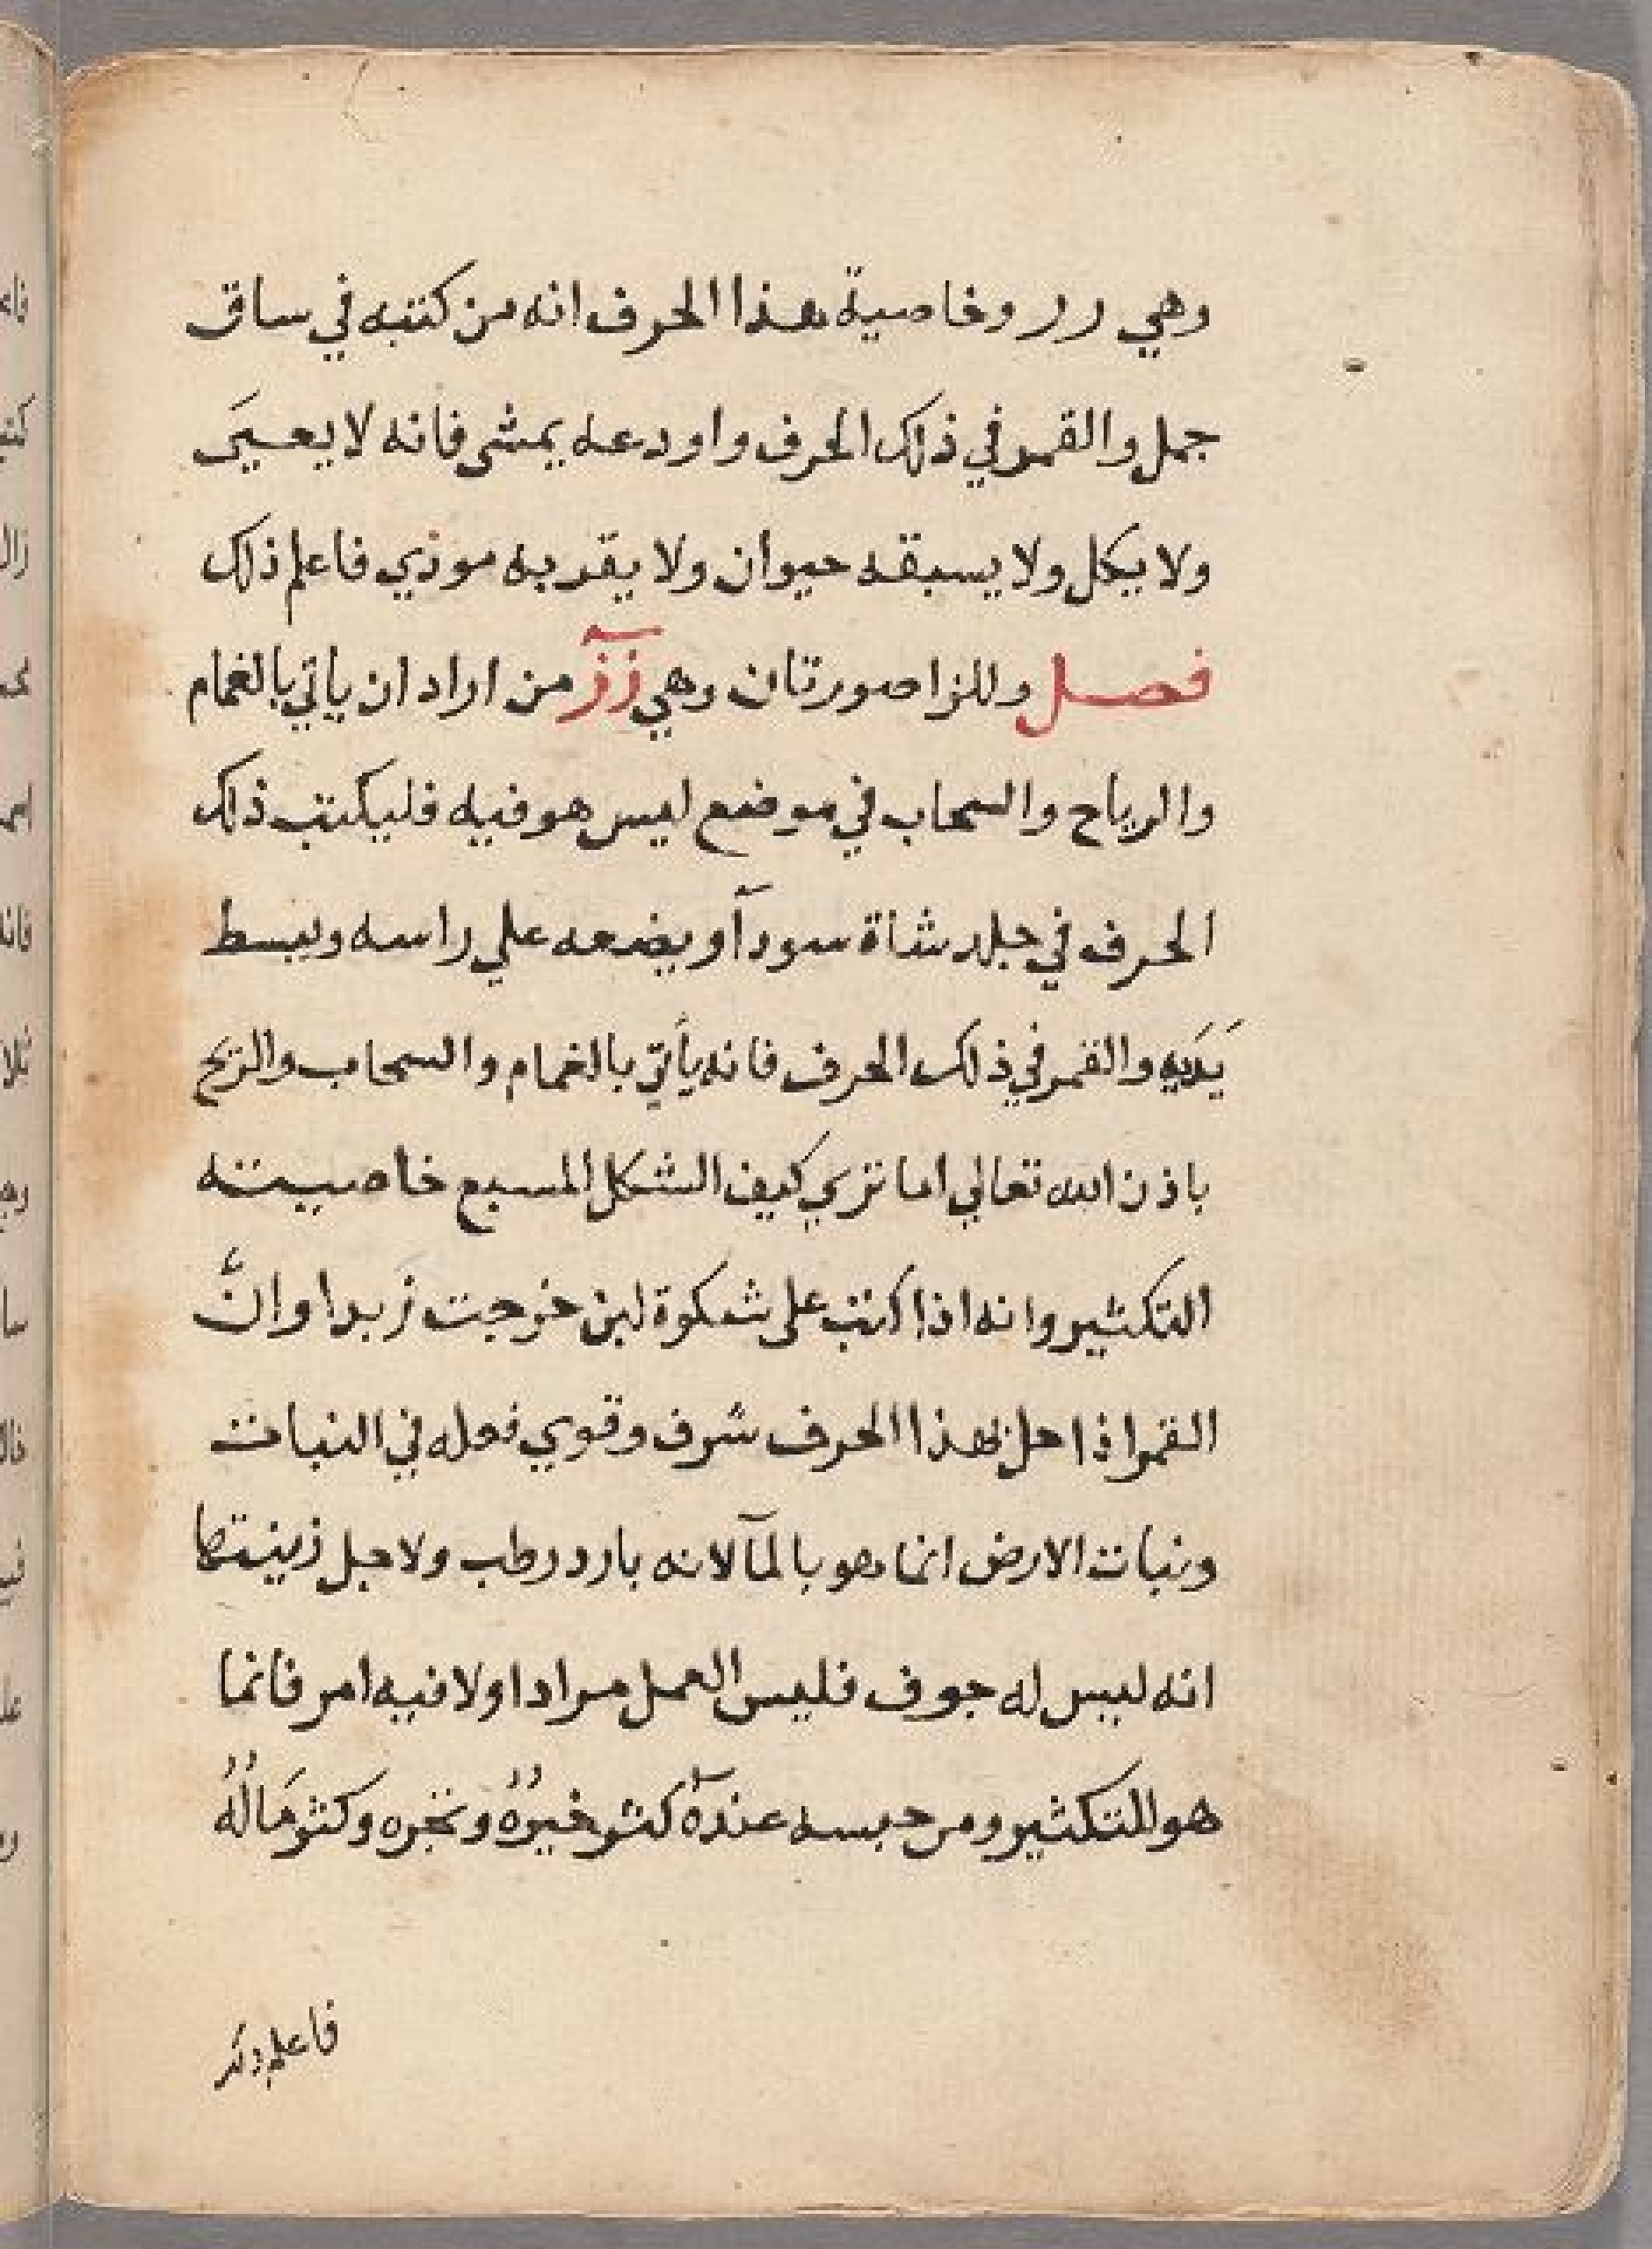 وهي رر وخاصية هذا الحرف انه من كتبه في ساق
جمل والقمر في ذلك الحرف واودعه يمشى فانه لا يعيَى
ولا يكل ولا يسبقه حيوان ولا يقربه موذي فاعلم ذلك
فصل وللزا صورتان وهي زز من اراد ان ياتي بالغمام
والرياح والسحاب في موضع ليس هو فيه فليكتب ذلك
الحرف في جلد شاة سودآ ويضعه علي راسه ويبسط
يَدَيه والقمر في ذلك الحرف فانه يأتي بالغمام والسحاب والريح
باذن الله تعالي اما تري كيف الشكل المسبع خاصيته
التكثير وانه اذا كتب على شكوة لبن خرجت زبدا وانَّ
القمر اذا حل بهذا الحرف شرف وقوي فعله في النبات
ونبات الارض انما هو بالمآ لانه بارد رطب ولاجل زينتها
انه ليس له جوف فليس العمل مرادا ولا فيه امر فانما
هو للتكثير ومن حبسه عنده كثر خيرُهُ ونجره وكثر مَالُهُ
فاعلم